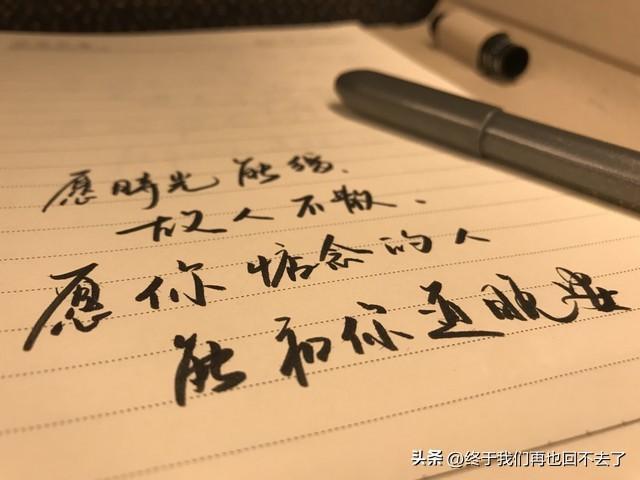 愿時光能缓、
故人不散、
愿你惦念的人
能和你道晚安
头条 @终于我们再也回不去了